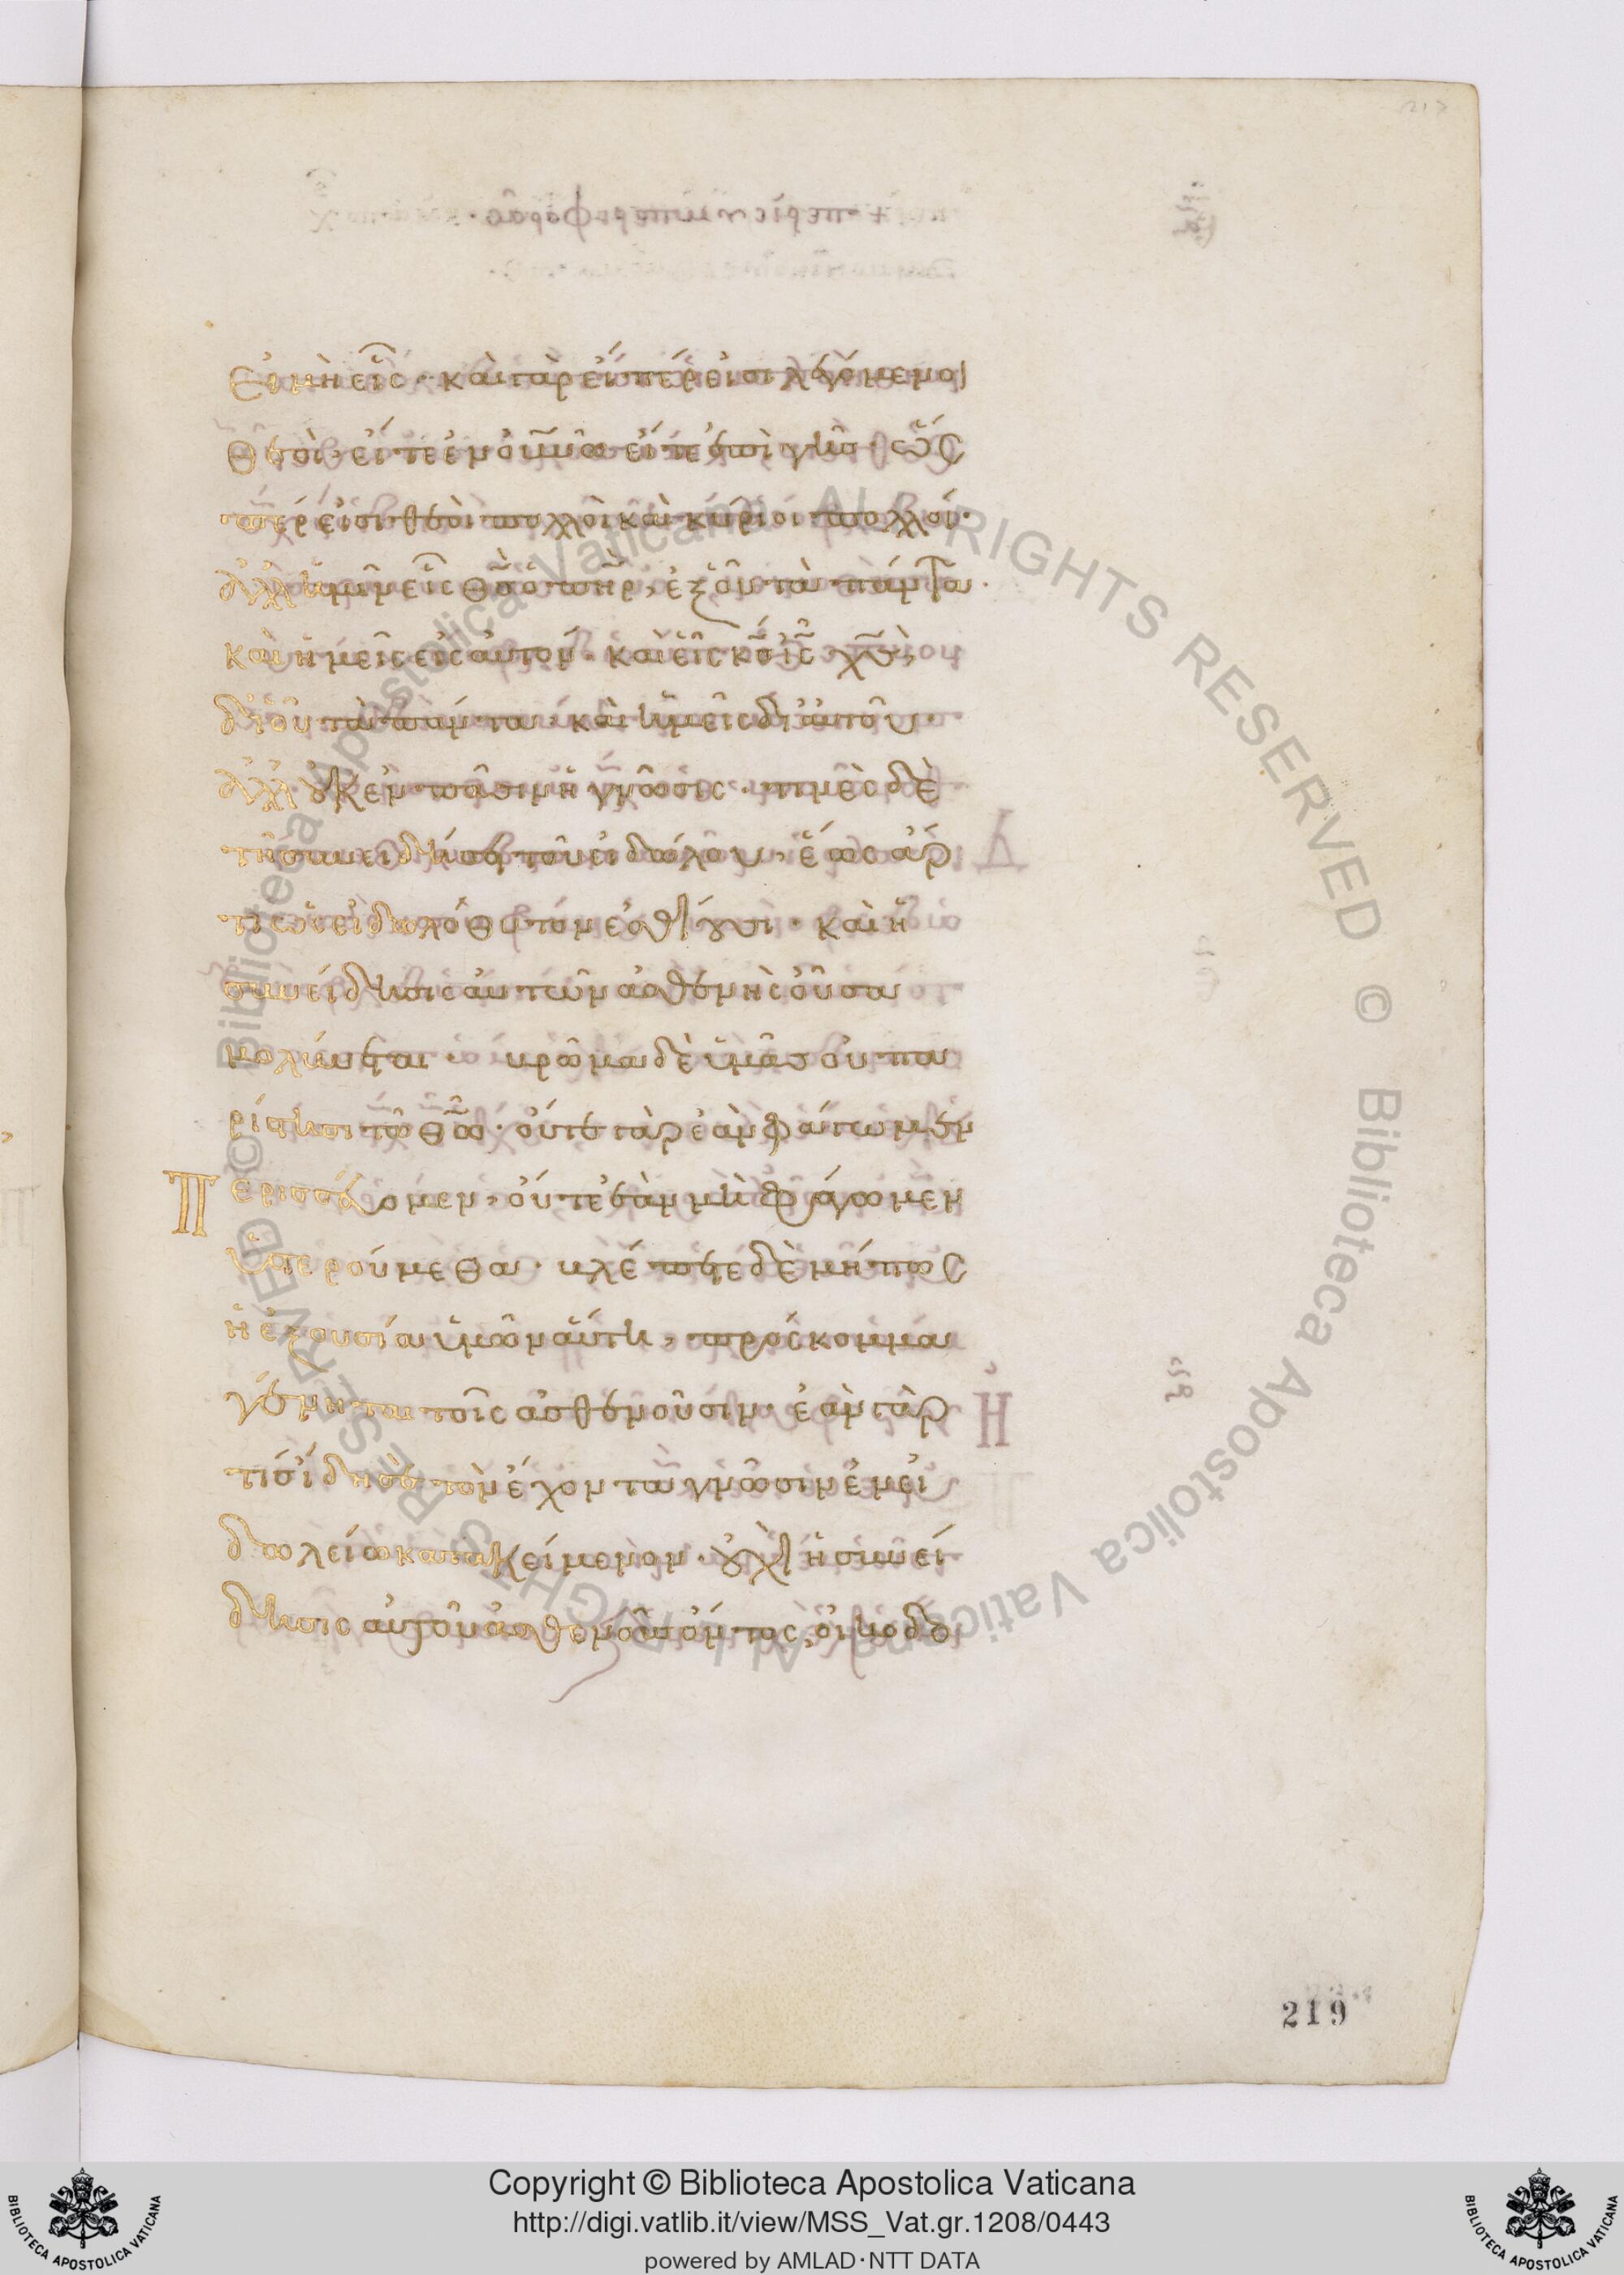 ἕτερος εἰ μὴ εἷς· καὶ γὰρ εἴπέρ εἰσι λεγόμενοι
θεοὶ, εἴτε ἐν οὐνῶ εἴτε ἐπὶ γῆσ· ὥς
περ εἰσι θεοὶ πολλοὶ καὶ κύριοι πολλοί·
ἀλλ ἡμῖν εἷς θσ ὁ πηρ, ἐξ οὗ τὰ πάντα·
καὶ ἡμεῖς εἰς αὐτόν· καὶ εἷς κσ ισ χσ,
δι οὗ τὰ πάντα· καὶ ἡμεῖς δι αὐτοῦ·
ἀλλ οὐκ ἐν πᾶσιν ἡ γνῶσις· τινὲς δὲ
τῆ συνειδήσει τοῦ εἰδώλου, ἕως ἄρ
τι ὡς εἰδωλόθυτον ἐσθίουσι· καὶ ἡ
συνείδησις αὐτῶν ἀσθενὴς οὖσα
μολύνεται· βρῶμα δὲ ἡμᾶσ οὐ πα
ρίστησι τῶ θῶ· οὔτε γὰρ ἐὰν φάγωμεν
Περισσεύομεν, οὔτε ἐὰν μὴ φάγωμεν
ὑστερούμεθα· βλέπετε δὲ μήπως
ἡ ἐξουσία ὑμῶν αὕτη, πρόσκομμα
γένηται τοῖς ἀσθενοῦσιν· ἐὰν γὰρ
τὶσ ἴδη σὲ τὸν ἔχοντα γνῶσιν ἐν εἰ
δωλείω κατακείμενον· οὐχὶ ἡ συνεί
δησις αὐτοῦ ἀσθενοῦς ὄντος, οἰκοδο
219
Copyright © Biblioteca Apostolica Vaticana
http://digi.vatlib.it/view/MSS_Vat.gr.1208/0443
powered by AMLAD·NTT DATA